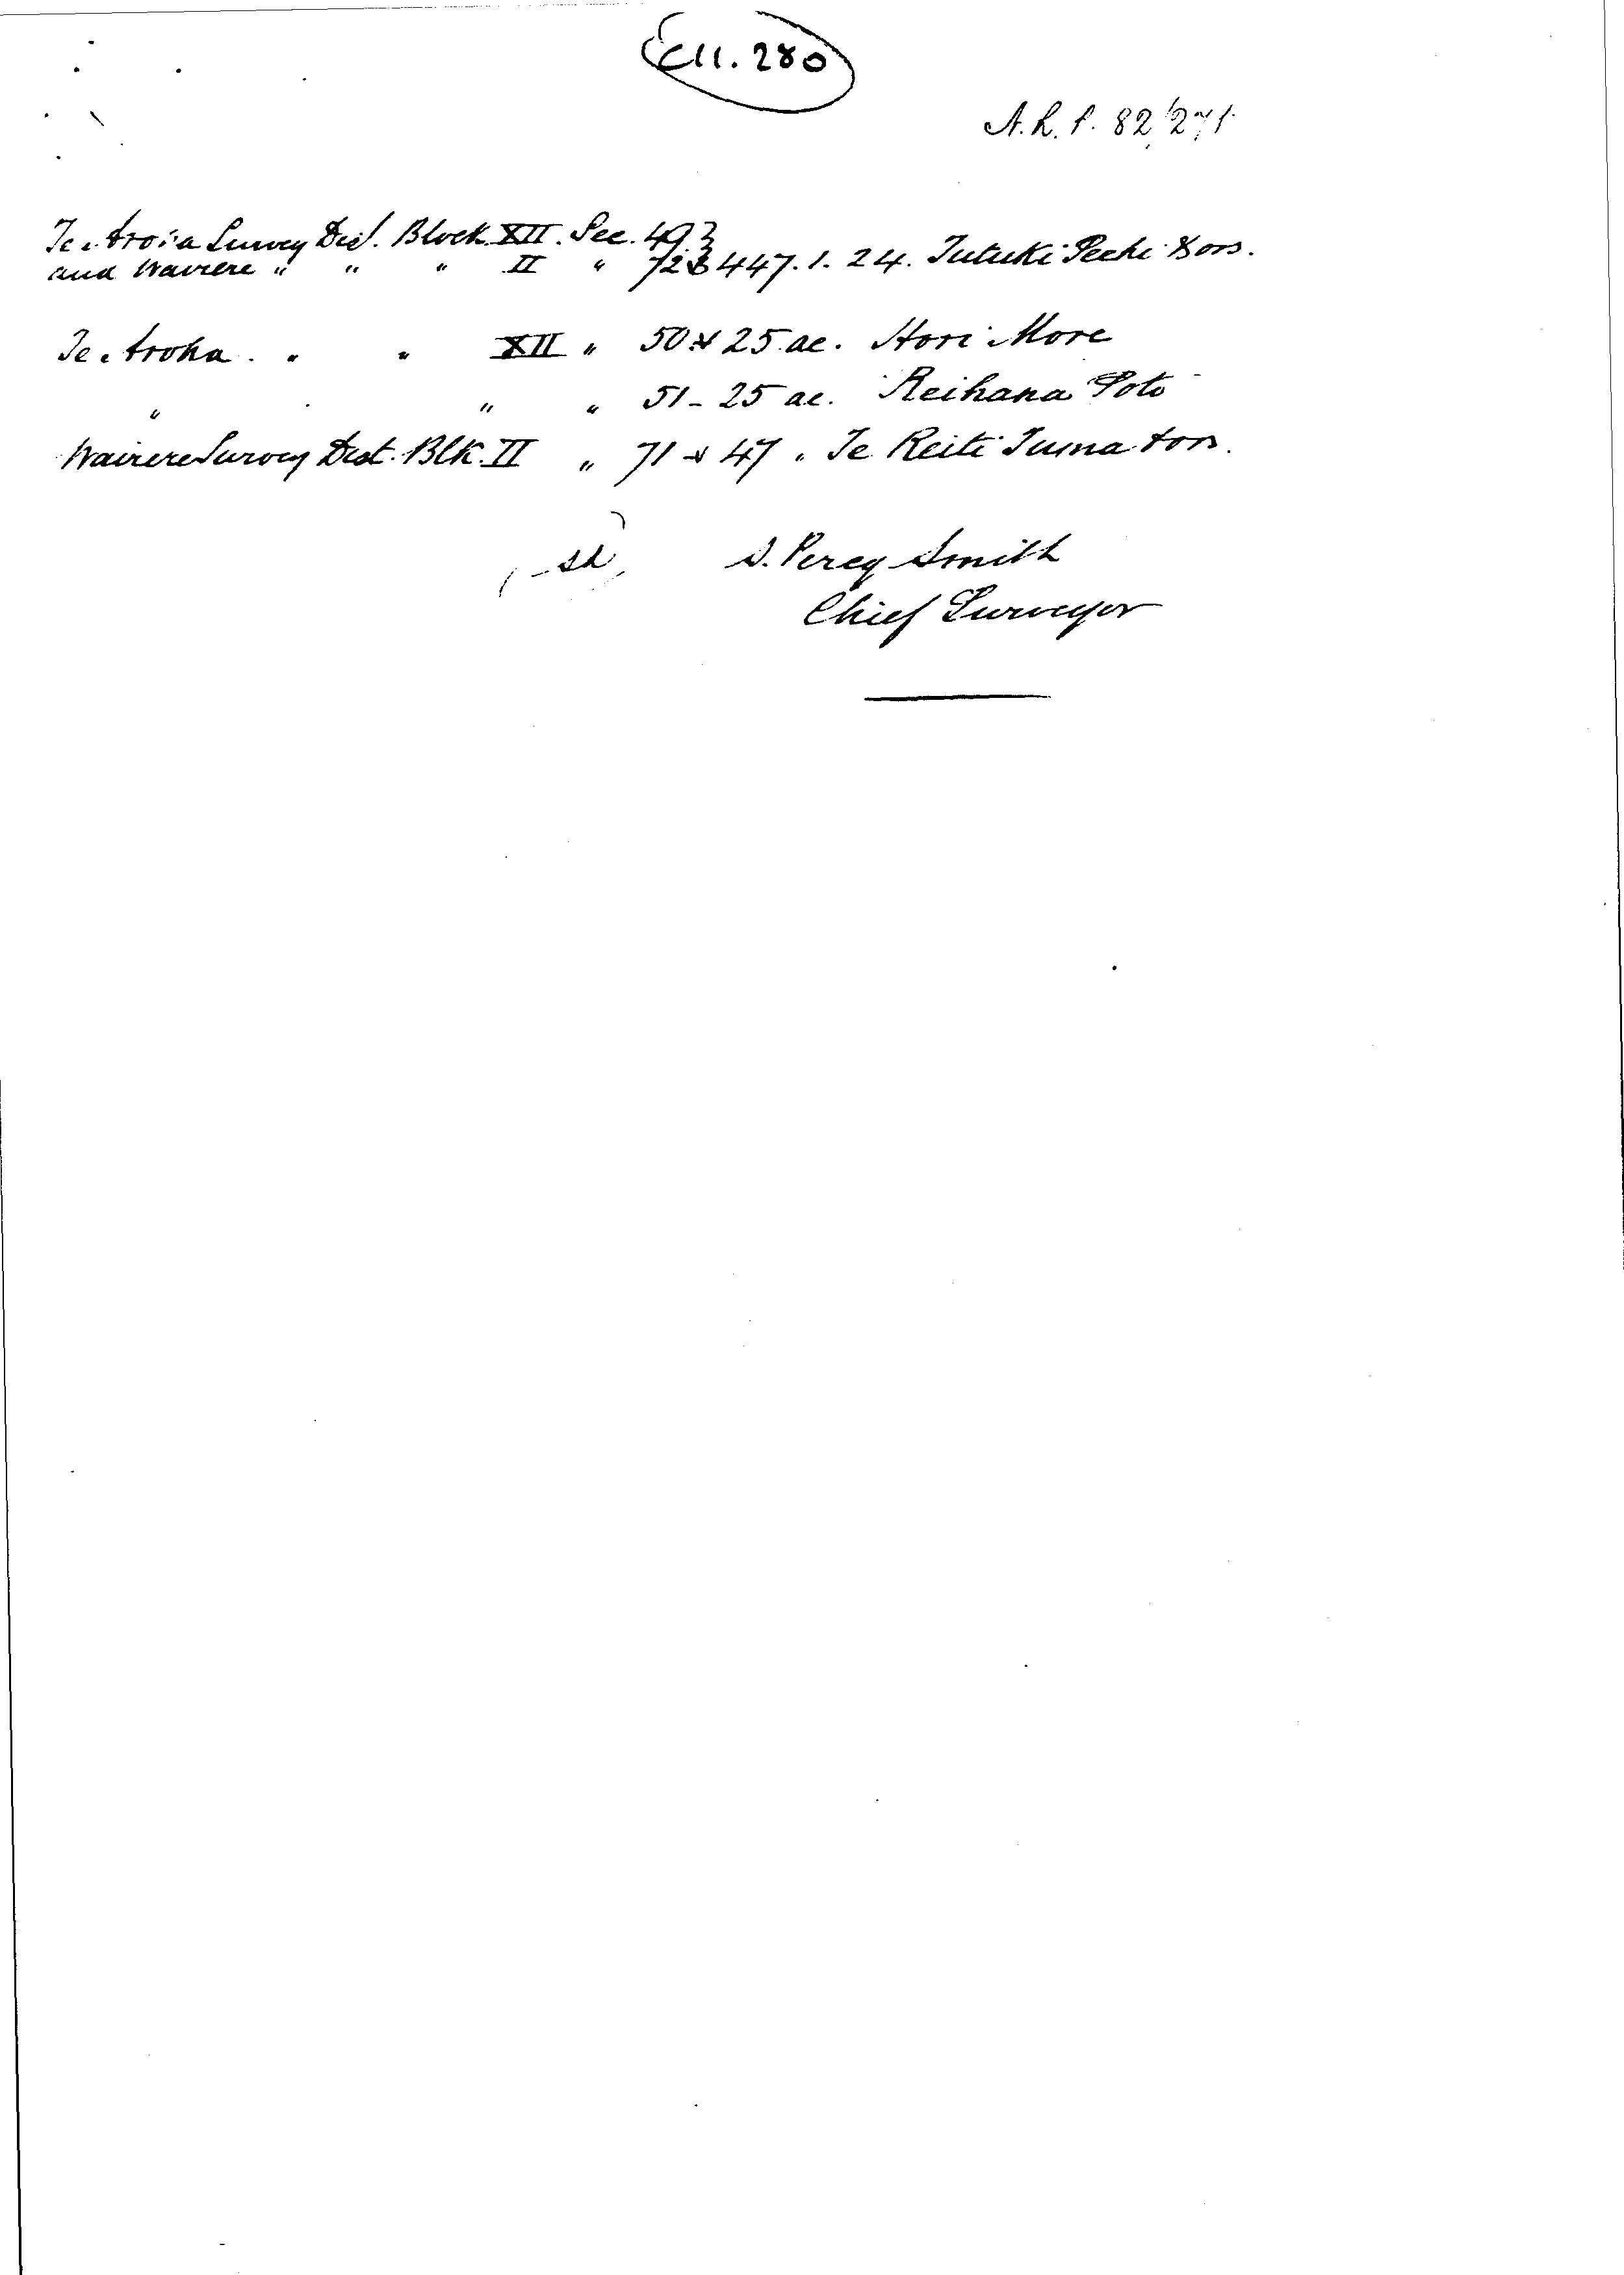 E11.280
A.L.P. 82/271
Te Aroha Survey Dist. Block XII. Sec. 49 }
and Wairere " " " II " 72 } 447.1.24. Tutuki Peehi & ors.
Te Aroha . " " XII " 50 & 25 ac. Hori More
" " " 51 - 25 ac. Reihana Poto
Wairere Survey Dist. Blk. II " 71 & 47 " Te Reiti Tuma & ors.
sd S. Percy Smith
Chief Surveyor